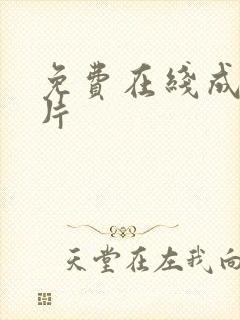 免費在綫成
片
天堂在左我向